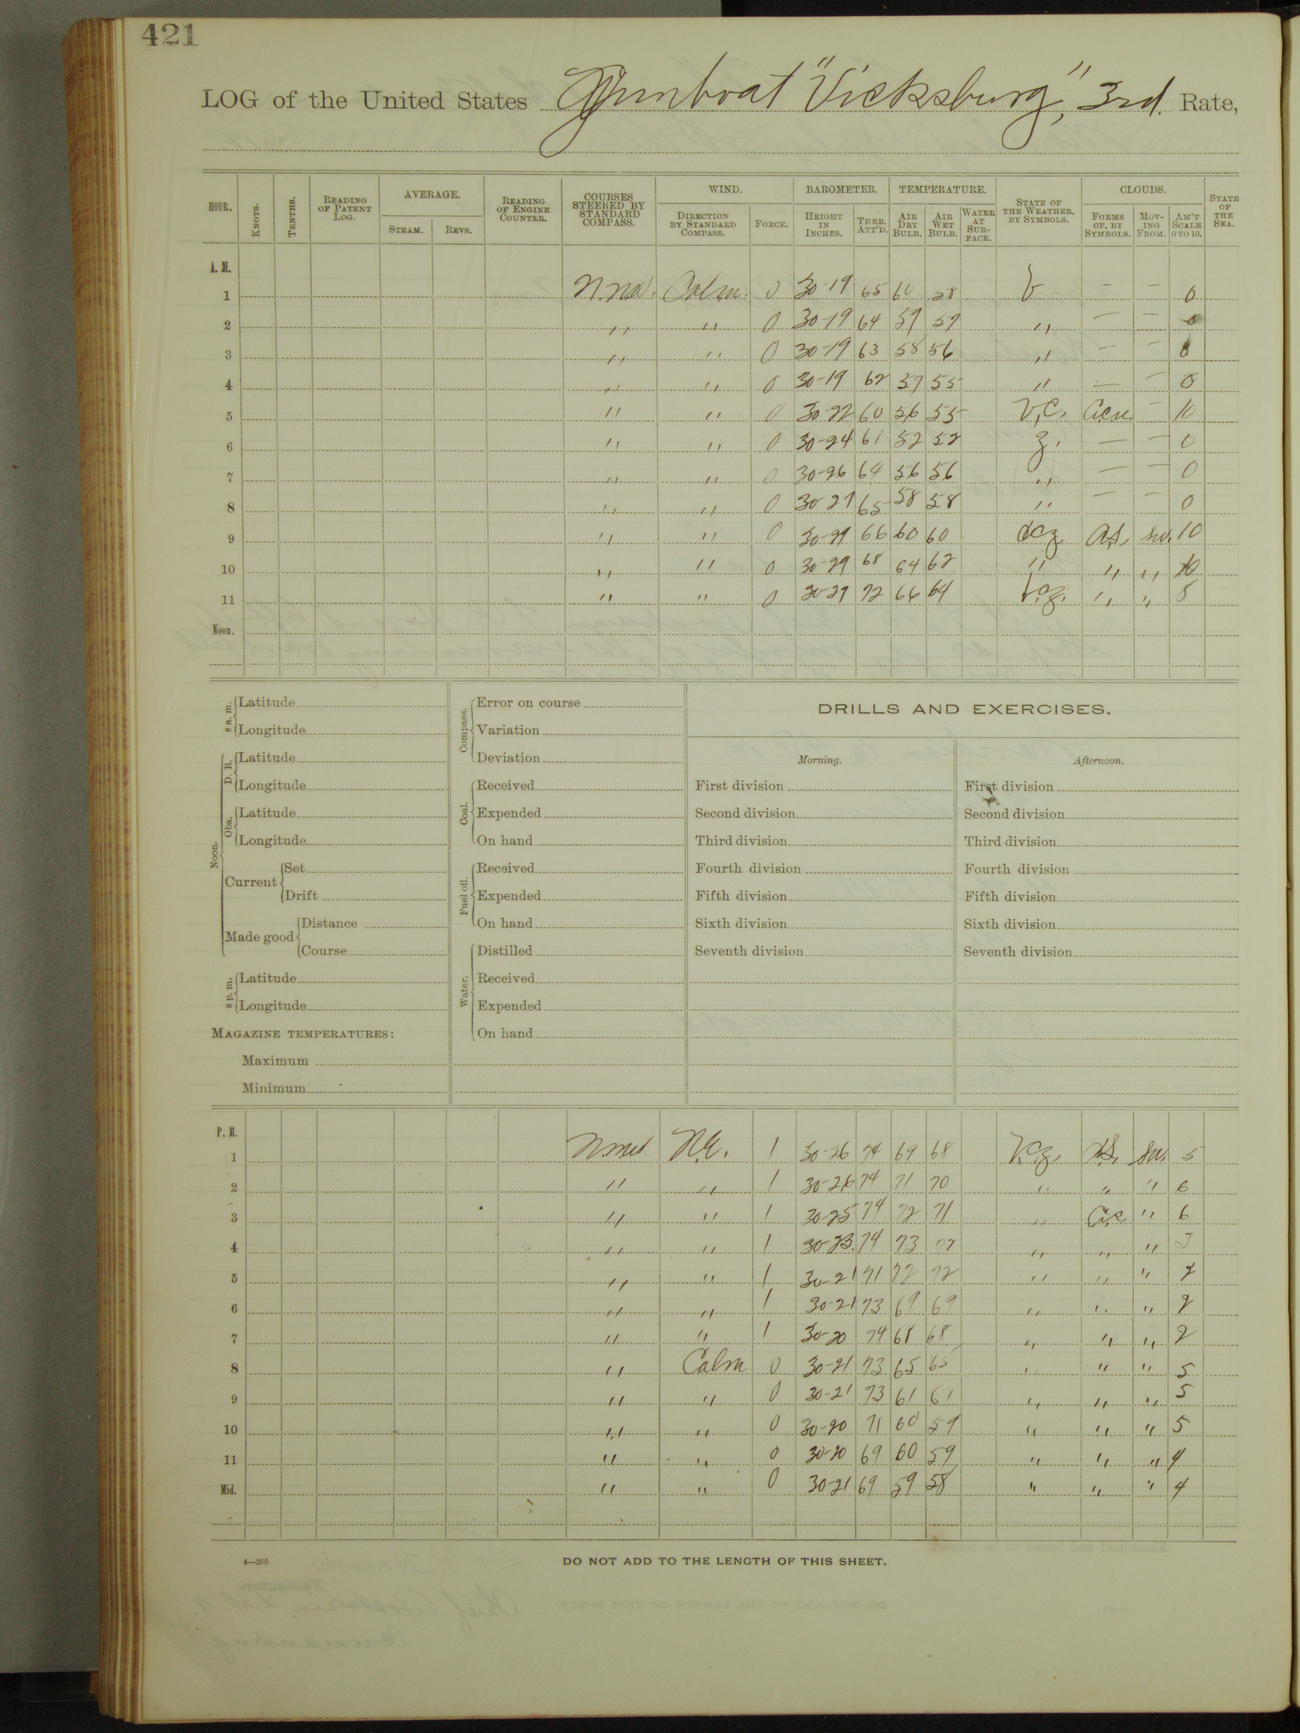 421
LOG of the United States Gunboat "Vicksburg", 3rd. Rate,
HOUR. KNOTS. TENTHS. READING OF PATENT LOG. AVERAGE. STEAM. REVS. READING OF ENGINE COUNTER. COURSES STEERED BY STANDARD COMPASS. WIND. DIRECTION BY STANDARD COMPASS. FORCE. BAROMETER. HEIGHT IN INCHES. THER. ATT'D. TEMPERATURE. AIR DRY BULB. AIR WET BULB. WATER AT SURFACE. STATE OF THE WEATHER, BY SYMBOLS. CLOUDS. FORMS OF, BY SYMBOLS. MOVING FROM. AM'T SCALE 0 TO 10. STATE OF THE SEA.
A. M.
1 Calm. 0 30-19 65 60 58 b — — 0
2 " " 0 30-19 64 59 59 " — — 0
3 " " 0 30-19 63 58 56 " — — 0
4 " " 0 30-19 62 57 55 " — — 0
5 " " 0 30-22 60 56 55 b,c, — 10
6 " " 0 30-24 61 52 52 z. — — 0
7 " " 0 30-26 64 56 56 " — — 0
8 " " 0 30-27 65 58 58 " — — 0
9 " " 0 30-29 66 60 60 sw. 10
10 " " 0 30-29 68 64 62 " " " 10
11 " " 0 30-27 72 66 64 b.c.z. " " 8
Noon.
8 a. m. Latitude
Longitude
Noon. D. R. Latitude
Longitude
Obs. Latitude
Longitude
Current Set
Drift
Made good Distance
Course
8 p. m. Latitude
Longitude
MAGAZINE TEMPERATURES:
Maximum
Minimum
Compass. Error on course
Variation
Deviation
Coal. Received
Expended
On hand
Fuel oil. Received
Expended
On hand
Water. Distilled
Received
Expended
On hand
DRILLS AND EXERCISES.
Morning.
First division
Second division
Third division
Fourth division
Fifth division
Sixth division
Seventh division
Afternoon.
First division
Second division
Third division
Fourth division
Fifth division
Sixth division
Seventh division
P. M.
1 N.E. 1 30-26 74 69 68 b.c.z. sw. 5
2 " " 1 30-26 74 71 70 " " " 6
3 " " 1 30-25 74 72 71 " " 6
4 " " 1 30-23 74 73 72 " " "
5 " " 1 30-21 71 72 72 " " " 2
6 " " 1 30-21 73 69 69 " " " 2
7 " " 1 30-20 74 68 68 " " " 2
8 " Calm 0 30-21 73 65 65 " " " 5
9 " " 0 30-21 73 61 61 " " " 5
10 " " 0 30-20 71 60 59 " " " 5
11 " " 0 30-20 69 60 59 " " " 4
Mid. " " 0 30-21 69 59 58 " " " 4
4—205
DO NOT ADD TO THE LENGTH OF THIS SHEET.